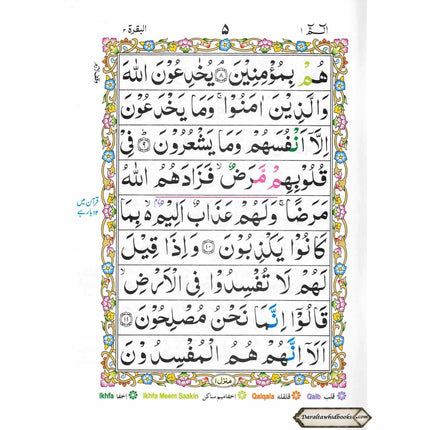 الٓمّٓ ١ ٥ البقرة ٢
هُمْ بِمُؤْمِنِيْنَ ۘ ﴿٨﴾ يُخٰدِعُوْنَ اللّٰهَ
وَالَّذِيْنَ اٰمَنُوْا ۚ وَمَا يَخْدَعُوْنَ
اِلَّاۤ اَنْفُسَهُمْ وَمَا يَشْعُرُوْنَ ؕ ﴿٩﴾ فِيْ
قُلُوْبِهِمْ مَّرَضٌ ۙ فَزَادَهُمُ اللّٰهُ
مَرَضًا ۚ وَلَهُمْ عَذَابٌ اَلِيْمٌ ۬ۙ بِمَا
قرآن میں
كَانُوْا يَكْذِبُوْنَ ﴿١٠﴾ وَاِذَا قِيْلَ
لَهُمْ لَا تُفْسِدُوْا فِي الْاَرْضِ ۙ
قَالُوْۤا اِنَّمَا نَحْنُ مُصْلِحُوْنَ ﴿١١﴾
اَلَاۤ اِنَّهُمْ هُمُ الْمُفْسِدُوْنَ
منزل ١
Ikhfa اخفا Ikhfa Meem Saakin اخفا میم ساکن Qalqala قلقلہ Qalb قلب
Daraltawhidbooks.com